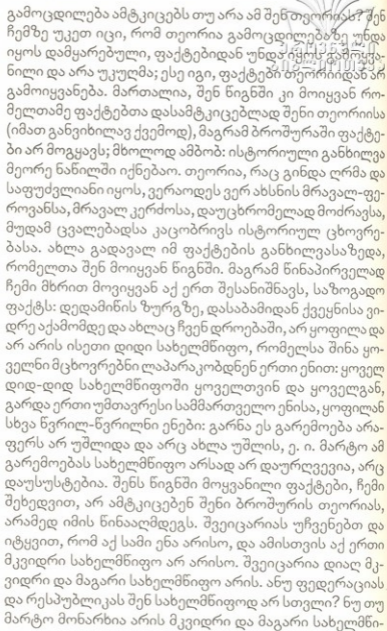 გამოცდილება ამტკიცებს თუ არა ამ შენ თეორიას? შენ
ჩემზე უკეთ იცი, რომ თეორია გამოცდილებაზე უნდა
იყოს დამყარებული, ფაქტებიდან უნდა იყოს გამოყვა-
ნილი და არა უკუღმა; ესე იგი, ფაქტები თეორიიდან არ
გამოიყვანება. მართალია, შენ წიგნში კი მოიყვან რო-
მელთამე ფაქტებთა დასამტკიცებლად შენი თეორიისა
(იმათ განვიხილავ ქვემოდ), მაგრამ ბროშურაში ფაქტე-
ბი არ მოგყავს; მხოლოდ ამბობ: ისტორიული განხილვა
მეორე ნაწილში იქნებაო. თეორია, რაც გინდა ღრმა და
საფუძვლიანი იყოს, ვერაოდეს ვერ ახსნის მრავალ-ფე-
როვანსა, მრავალ კერძოსა, დაუცხრომელად მოძრავსა,
მუდამ ცვალებადსა კაცობრივს ისტორიულ ცხოვრე-
ბასა. ახლა გადავალ იმ ფაქტების განხილვასაზედა,
რომელთა შენ მოიყვან წიგნში. მაგრამ წინაპირველად
ჩემი მხრით მოვიყვან აქ ერთ შესანიშნავს, საზოგადო
ფაქტს: დედამიწის ზურგზე, დასაბამიდან ქვეყნისა ვი-
დრე აქამომდე და ახლაც ჩვენ დროებაში, არ ყოფილა და
არ არის ისეთი დიდი სახელმწიფო, რომელსა შინა ყო-
ველნი მცხოვრებნი ლაპარაკობდნენ ერთი ენით: ყოველ
დიდ-დიდ სახელმწიფოში ყოველთვინ და ყოველგან,
გარდა ერთი უმთავრესი სამმართველო ენისა, ყოფილან
სხვა წვრილ-წვრილნი ენები: გარნა ეს გარემოება არა-
ფერს არ უშლიდა და არც ახლა უშლის, ე. ი. მარტო ამ
გარემოებას სახელმწიფო არსად არ დაურღვევია, არც
დაუსუსტებია. შენს წიგნში მოყვანილი ფაქტები, ჩემი
შეხედვით, არ ამტკიცებენ შენი ბროშურის თეორიას,
არამედ იმის წინააღმდეგს. შვეიცარიას უჩვენებთ და
იტყვით, რომ აქ სამი ენა არისო, და ამისთვის აქ ერთი
მკვიდრი სახელმწიფო არ არისო. შვეიცარია დიაღ მკ-
ვიდრი და მაგარი სახელმწიფო არის. ანუ ფედერაციას
და რესპუბლიკას შენ სახელმწიფოდ არ სთვლი? ნუ თუ
მარტო მონარხია არის მკვიდრი და მაგარი სახელმწი-